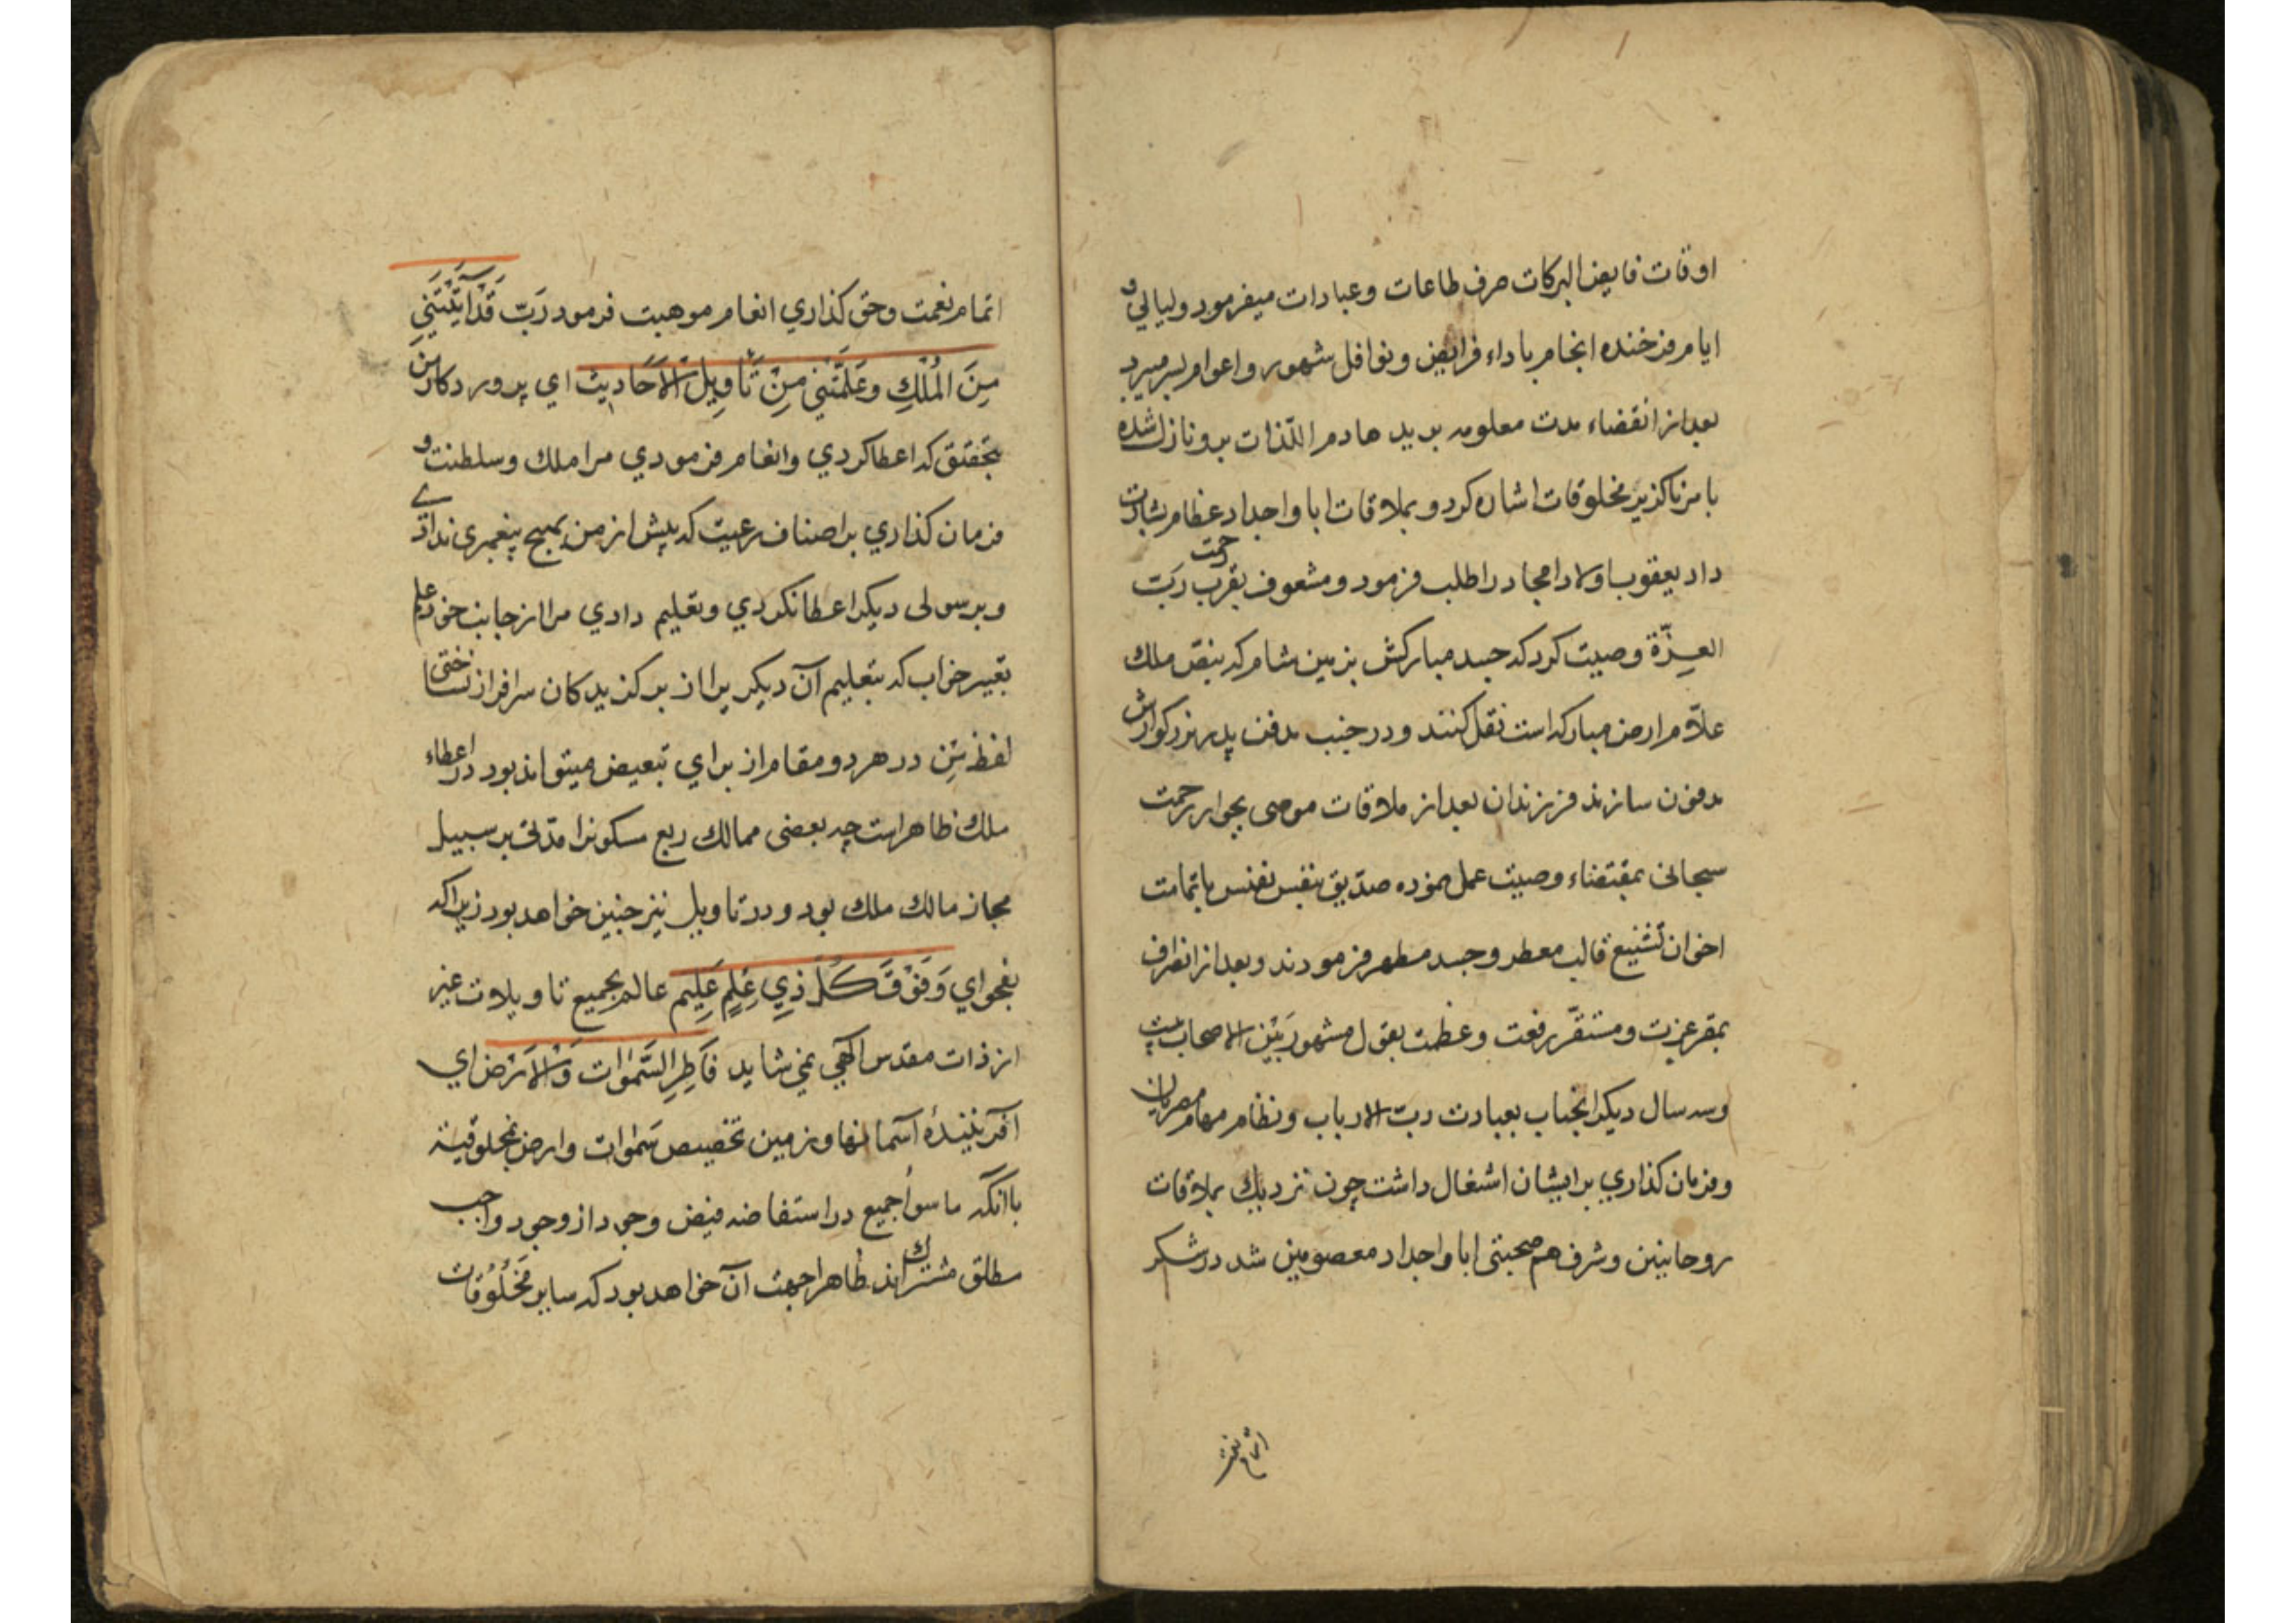 اوقات فایض البرکات صرف طاعات وعبادات میفرمود ولیالي و
ایام فرخنده انجام باداء فرایض ونوافل شهور واعوام بسر میبرد
بعد از انقضاء مدت معلومه برید هادم اللّذات برو نازل شده
بامر ناکزیر مخلوقات اشاره کرد و بملاقات ابا واجداد عظام بشارت
داد یعقوب اولاد امجاد را طلب فرمود ومشعوف بقرب رحمت ربّ
العزّة وصیت کرد که جسد مبارکش بزمین شام که بنصّ ملک
علاّم ارض مبارکه است نقل کنند و در جنب مدفن پدر بزرکوارش
مدفون سازند فرزندان بعد از ملاقات موصی بجوار رحمت
سبحانی بمقتضاء وصیت عمل نموده صدّیق بنفس نفیس باتمامت
اخوان تشییع قالب معطر وجسد مطهر فرمودند وبعد از انصراف
بمقر عزت ومستقّر رفعت وعظمت بقول مشهور بَیْنَ الاصحاب بیست
وسه سال دیکر انجناب بعبادت ربّ الارباب ونظام مهام مصریان
وفرمان کذاري بر ایشان اشغال داشت چون نزدیک بملاقات
روحانیین وشرف هم صحبتی ابا واجداد معصومین شد در شکر
اتمام نعمت وحق کذاري انعام موهبت فرمود رَبّ قَدْ آتَیْتَنِي
مِنَ الْمُلْكِ وعَلَّمْتَنِي مِنْ تَأوِیلِ الاَحَادیث اي پروردکار من
بتحقیق که اعطا کردي وانعام فرمودي مرا ملك وسلطنت و
فرمان کذاري بر اصناف رعیت که پیش از من بهیچ پیغمبری نداد
وبرسولی دیکر اعطا نکردي وتعلیم دادي مرا از جانب خود علم
تعبیر خواب که بتعلیم آن دیکر یرا از برکزیدکان سرافراز نساختی
لفظ مِن در هر دو مقام از براي تبعیض میتواند بود در اعطاء
ملك ظاهر است چه بعضی ممالك ربع مسکونرا مدتی بر سبیل
مجاز مالك ملك بود و در تاویل نیز چنین خواهد بود زیرا که
بفحواي وَفَوْقَ كُلِّ ذِي عِلْمٍ عَلِیم عالم بجمیع تاویلات غیر
از ذات مقدس الٓهي نمی شاید فَاطِرِ السَّمٰوات وَالاَرْض اي
آفرینندۀ آسمانها وزمین تخصیص سمٰوات وارض بمخلوقیة
باانکه ما سوا جمیع در استفاضه فیض وجود از وجود واجب
مطلق مشترك اند ظاهرا جهت آن خواهد بود که سایر مَخْلُوُقات